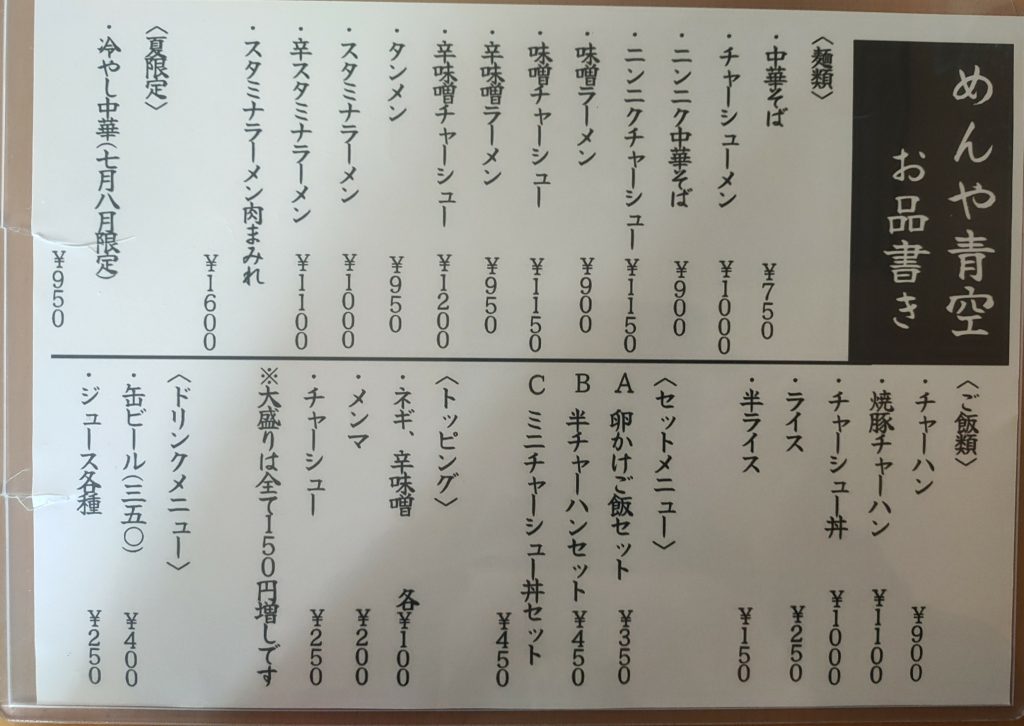 めんや青空
お品書き
〈麺類〉
・中華そば ¥750
・チャーシューメン ¥1000
・ニンニク中華そば ¥900
・ニンニクチャーシュー ¥1150
・味噌ラーメン ¥900
・味噌チャーシュー ¥1150
・辛味噌ラーメン ¥950
・辛味噌チャーシュー ¥1200
・タンメン ¥950
・スタミナラーメン ¥1000
・辛スタミナラーメン ¥1100
・スタミナラーメン肉まみれ
¥1600
〈夏限定〉
・冷やし中華(七月八月限定)
¥950
〈ご飯類〉
・チャーハン ¥900
・焼豚チャーハン ¥1100
・チャーシュー丼 ¥1000
・ライス ¥250
・半ライス ¥150
〈セットメニュー〉
A 卵かけご飯セット ¥350
B 半チャーハンセット ¥450
C ミニチャーシュー丼セット
¥450
〈トッピング〉
・ネギ、辛味噌 各¥100
・メンマ ¥200
・チャーシュー ¥250
※大盛りは全て150円増しです
〈ドリンクメニュー〉
・缶ビール(三五〇) ¥400
・ジュース各種 ¥250